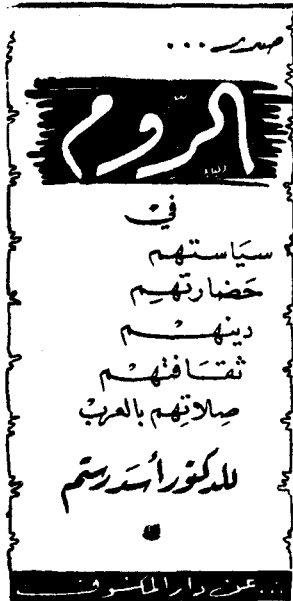 صدر ...
الرّوم
في
سيَاستهم
حَضارتهِم
دينهم
ثقَافتهم
صِلاتِهم بالعربْ
للدكتور أسَد رستم
... عن دار المكشوف